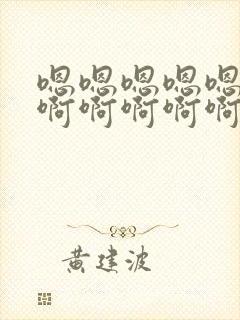 嗯嗯嗯嗯嗯
啊啊啊啊啊
黄建波